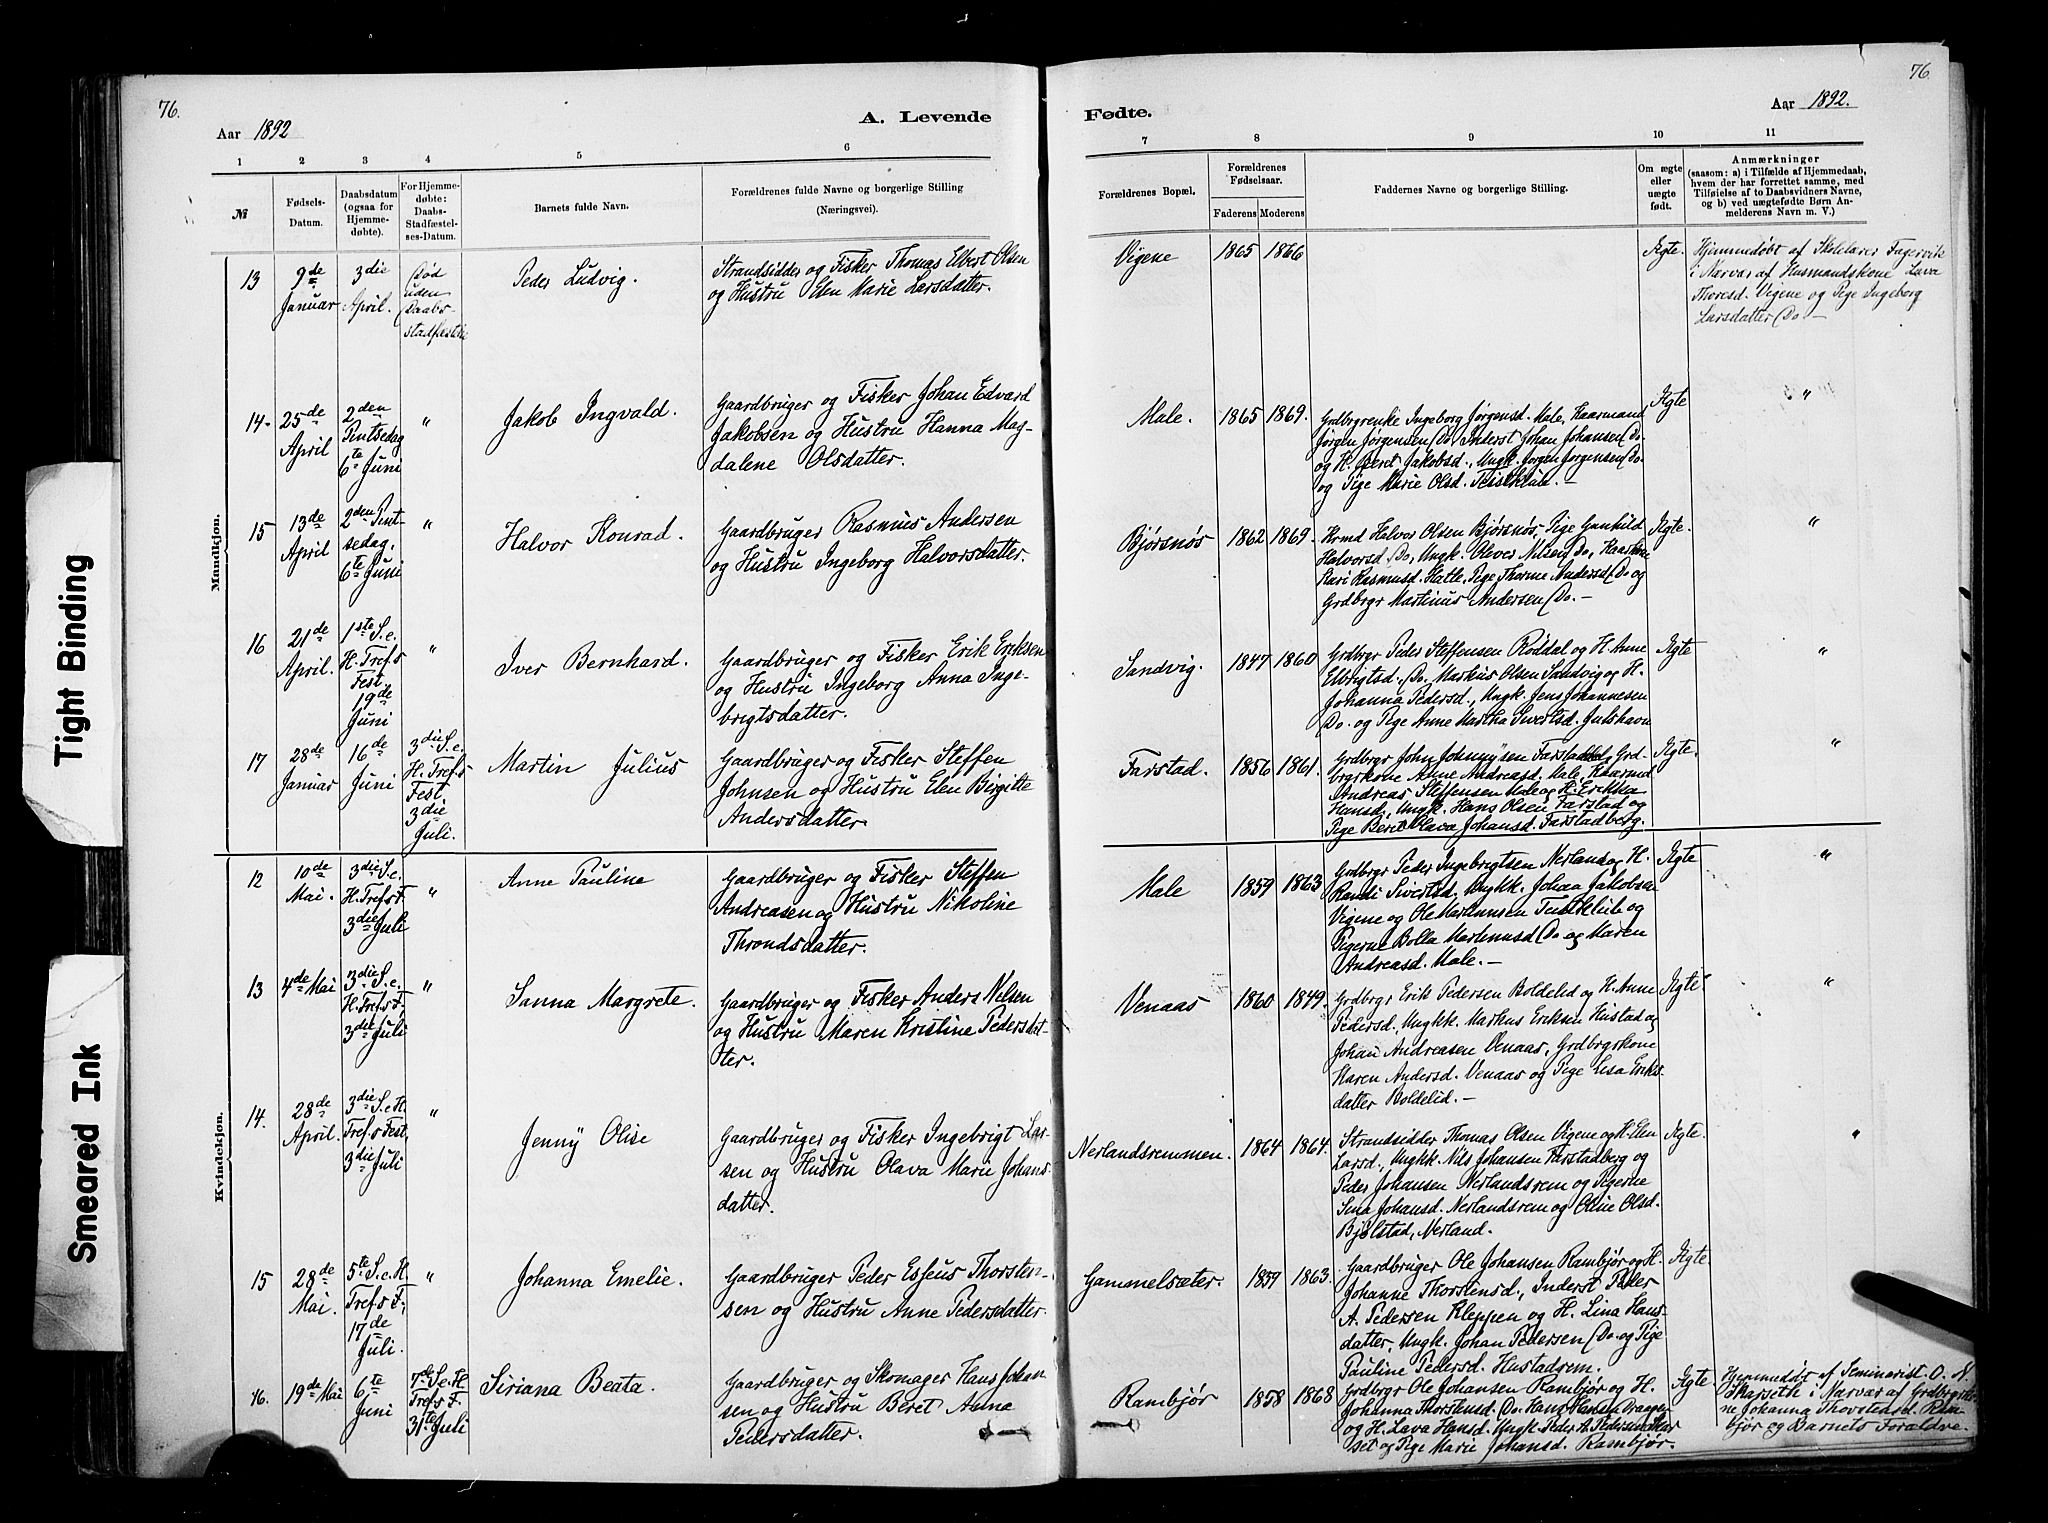 76.
Aar 1892
A. Levende
1 2 3 4 5 6
№
Fødsels-
Datum.
Daabsdatum
(ogsaa for
Hjemme-
døbte).
For Hjemme-
døbte:
Daabs-
Stadfæstel-
ses-Datum.
Barnets fulde Navn.
Forældrenes fulde Navne og borgerlige Stilling
(Næringsvei).
Mandkjøn.
13
9de
Januar
3die
April.
Død
uden
Daabs-
stadfæstelse
Peder Ludvig.
Strandsidder og Fisker Thomas Elbert Olsen
og Hustru Elen Marie Larsdatter.
14.
25de
April
2den
Pintsedag
6te Juni
"
Jakob Ingvald.
Gaardbruger og Fisker Johan Edvard
Jakobsen og Hustru Hanna Mag-
dalene Olsdatter.
15
13de
April
2den Pint-
sedag,
6te Juni
"
Halvor Konrad.
Gaardbruger Rasmus Andersen
og Hustru Ingeborg Halvorsdatter.
16
21de
April.
1ste S. e.
H. Tref.s
Fest
19de
Juni
"
Iver Bernhard.
Gaardbruger og Fisker Erik Eriksen
og Hustru Ingeborg Anna Inge-
brigtsdatter.
17
28de
Januar
16de
Juni
3die S. e.
H. Tref.s
Fest
3die
Juli.
Martin Julius
Gaardbruger og Fisker Steffen
Johnsen og Hustru Elen Birgitte
Andersdatter.
Kvindekjøn.
12
10de
Mai.
3die S. e.
H. Tref.s F.
3die Juli
"
Anne Pauline
Gaardbruger og Fisker Steffen
Andreasen og Hustru Nikoline
Throndsdatter.
13
4de Mai
3die S. e.
H. Tref.s F.
3die Juli
"
Sanna Margrete.
Gaardbruger og Fisker Anders Nelsen
og Hustru Maren Kristine Pedersdat-
ter.
14.
28de
April.
3die S. e. H.
Tref.s Fest,
3die Juli
"
Jenny Olise
Gaardbruger og Fisker Ingebrigt Lar-
sen og Hustru Olava Marie Johans-
datter.
15
28de
Mai.
5te S. e. H.
Tref.s F.,
17de
Juli.
"
Johanna Emelie.
Gaardbruger Peder Esseus Thorsten-
sen og Hustru Anne Pedersdatter.
16.
19de Mai
6te
Juni
7de S. e. H.
Tref.s F.
31te Juli
Siriana Beata.
Gaardbruger og Skomager Hans Johan-
sen og Hustru Beret Anna
Pedersdatter.
76.
Fødte.
Aar 1892.
7 8 9 10 11
Forældrenes Bopæl.
Forældrenes
Fødselsaar.
Faderens Moderens
Faddernes Navne og borgerlige Stilling.
Om ægte
eller
uægte
født.
Anmærkninger
(saasom: a) i Tilfælde af Hjemmedaab,
hvem der har forrettet samme, med
Tilføielse af to Daabsvidners Navne,
og b) ved uægtefødte Børn An-
melderens Navn m. V.)
Vigene 1865 1866
Ægte.
Hjemmedøbt af Skolelærer Fagervik
i Nærvær af Husmandskone Lava
Thoresd. Vigene og Pige Ingeborg
Larsdatter Do –
Male. 1865 1869.
Grdbrgrenke Ingeborg Jørgensd. Male, Kaarmand
Jørgen Jørgensen Do, Inderst Johan Johansen Do.
og H. Beret Jakobsd., Ungk. Jørgen Jørgensen Do.
og Pige Marie Olsd. –
Ægte
"
Bjørsnøs 1862 1869.
Krmd Halvor Olsen Bjørsnøs, Pige Gunhild
Halvorsd. Do, Ungk. Oliver Nilsen Do, Kaarkone
Kari Rasmusd. Hatle, Pige Thorine Andersd. Do og
Grdbrgr Martinus Andersen Do. –
Ægte.
"
Sandvig. 1847 1860
Grdbrgr Peder Steffensen Røddal og H. Anne
Elbrigtsd. Do. Markus Olsen Sandvig og H.
Johanna Pedersd., Ungk. Jens Johannesen
Do. og Pige Anne Martha Sivertsd. Julshavn
Ægte
"
Farstad. 1856 1861.
Grdbrgr John Johnnysen Farstad, Grd-
brgrkone Anne Andreasd. Male, Kaarmd
Andreas Steffensen Male og H. Erikka
Hansd., Ungk. Hans Olsen Farstad og
Pige Berit Olava Johansd. Farstadberg.
Ægte.
"
Male 1859 1863
Grdbrgr Peder Ingebrigtsen Nerland og H.
Randi Sivertsd., Ungkk. Johan Jakobsen
Vigene og Ole Martinusen og
Pigerne Bolla Martinusd. Do og Maren
Andreasd. Male. –
Ægte
"
Venaas 1860 1849.
Grdbrgr Erik Pedersen Boldelid og H. Anne
Pedersd., Ungkk. Markus Eriksen Hustad og
Johan Andreasen Venaas, Grdbrgrkone
Karen Andersd. Venaas og Pige Lisa Eriks-
datter Boldelid. –
Ægte
"
Nerlandsremmen. 1864 1864.
Strandsidder Thomas Olsen Vigene og H. Elen
Larsd., Ungkk. Nils Johansen Farstadberg og
Peder Johansen Nerlandsrem og Pigerne
Sina Johansd. Nerlandsrem og Oline Olsd.
Bjølstad, Nerland.
Ægte.
"
Gammelsæter. 1859 1863.
Gaardbruger Ole Johansen Rambjør og H.
Johanne Thorstensd., Inderst Peder
A. Pedersen Kleppen og H. Lina Hans-
datter, Ungk. Johan Pedersen Do. og Pige
Pauline Pedersd. Hustadrem.
Ægte.
Rambjør 1858 1868
Grdbrgr Ole Johansen Rambjør og H.
Johanna Thorstensd. Do. Hans Hansen
og H. Lava Hansd. Ungk. Peder A. Pedersen
og Pige Marie Johansd. Rambjør.
Ægte.
Hjemmedøbt af Seminarist O. N.
Skarseth i Nærvær af Grdbrgrko-
ne Johanna Thorstensd. Ram-
bjør og Barnets Forældre.
Tight Binding
Smeared Ink